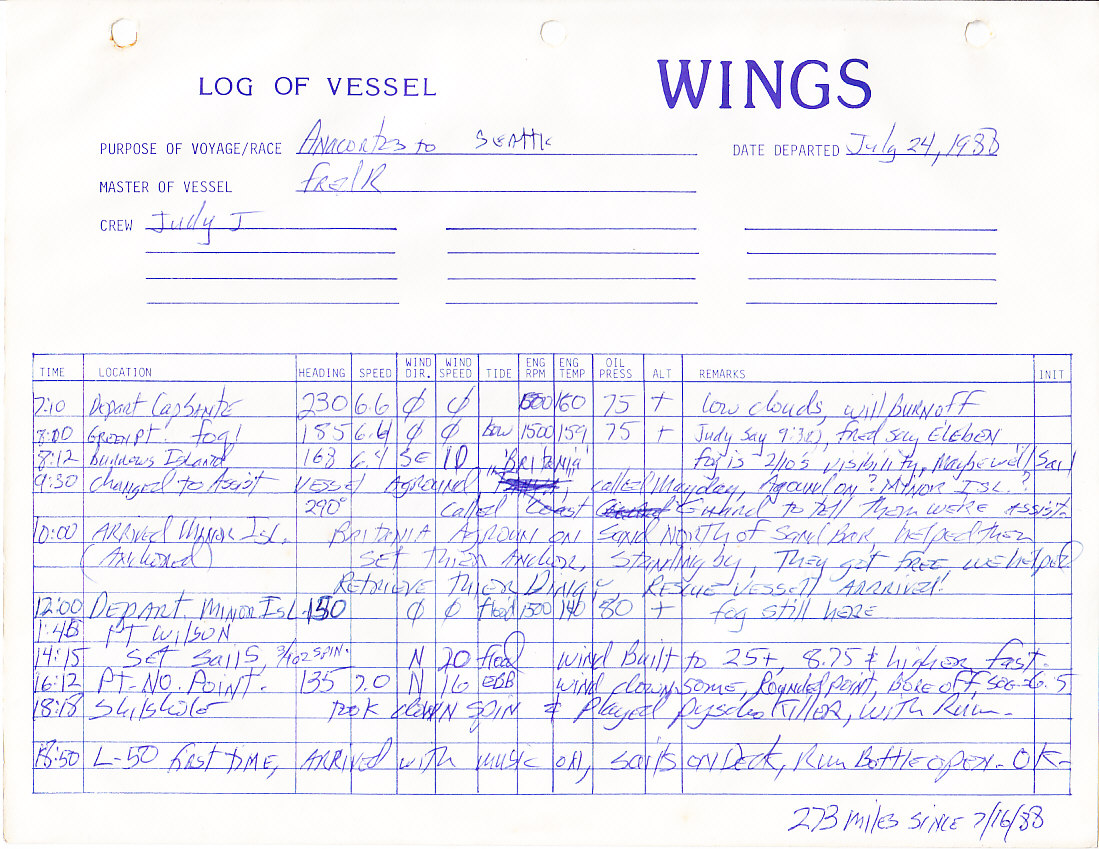 LOG OF VESSEL WINGS
PURPOSE OF VOYAGE/RACE Anacortes to SEATTLE DATE DEPARTED July 24, 1988
MASTER OF VESSEL FRED R
CREW Judy J
TIME LOCATION HEADING SPEED WIND DIR. WIND SPEED TIDE ENG RPM ENG TEMP OIL PRESS ALT REMARKS INIT
7:10 Depart Capsante 230 6.6 ϕ ϕ 1500 160 75 + low clouds, will BURN off
8:00 GREEN PT. fog! 185 6.4 ϕ ϕ low 1500 159 75 + Judy say 9:30, fred say ELEBEN
8:12 Burrows Island 168 6.4 SE 10 fog is 2/10's visibility, Maybe will sail
9:30 Changed to Assist VESSEL AGROUND "BRITENIA", called Mayday, Aground on ? MINOR ISL.?
290° Called Coast Guard to tell them we're assist.
10:00 ARRIVED MINOR ISL. BRITANIA AGROUN ON SAND NORTH of SAND BAR, helped then
(Anchored) SET THIER ANCHOR, STANDING by, They got FREE, we helped
RETRIEVE THIER DING, RESCUE VESSELL ARRIVED!
12:00 DEPART MINOR ISL 150 ϕ ϕ flood 1500 140 80 + fog still HERE
1:45 PT WILSON
14:15 SET SAILS, 3/4 oz SPIN. N 20 flood WIND BUILT to 25+, 8.75 & higher fast.
16:12 PT. NO. POINT. 135 7.0 N 16 EBB WIND down some, Rounded point, bore off, SOG-6.5
18:18 Shilshole TOOK dOWN SPIN & Played pyscho KILLER, with Rum.
18:50 L-50 first TIME, ARRIVED with music on, sails on Deck, Rum Bottle open - OK-
273 miles SINCE 7/16/88